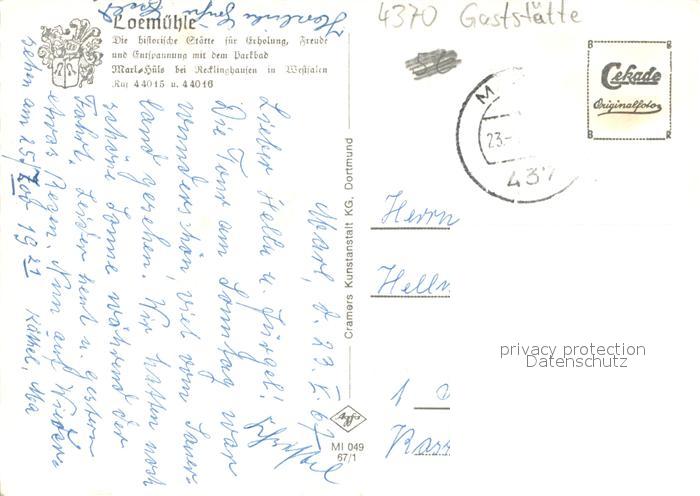 4370 Gaststätte
Loemühle
Die historische Stätte für Erholung, Freude
und Entspannung mit dem Parkbad
Marl-Hüls bei Recklinghausen in Westfalen
Ruf 44015 u. 44016
Herzliche Grüße
Marl, d. 23. I. 67
Lieber Hellm u. Jürgel!
Die Tour am Sonntag war
wunderschön, viel vom Sauer-
land gesehen. Wir hatten noch
schöne Sonne während der
Fahrt. Leider heut u. gestern
etwas Regen. Nun auf Wieder-
sehen am 25/I
19 21
Cramers Kunstanstalt KG, Dortmund
Agfa
MI 049
67/1
B R
Cekade
Originalfoto
B R
M
23.
437
Herrn
Helln
1
Kass
privacy protection
Datenschutz